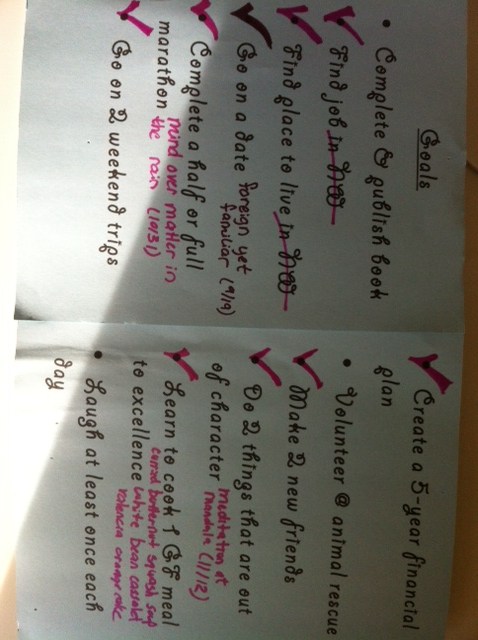 Goals
• Complete & publish book
Find job in NW
Find place to live in NW
Go on a date foreign yet
familiar (9/19)
Complete a half or full
marathon mind over matter in
the rain (10/31)
Go on 2 weekend trips
Create a 5-year financial
plan
• Volunteer @ animal rescue
Make 2 new friends
Do 2 things that are out
of character meditation at
mandala (11/12)
Learn to cook 1 GF meal
curried butternut squash soup
to excellence white bean cassoulet
valencia orange cake
• Laugh at least once each
day